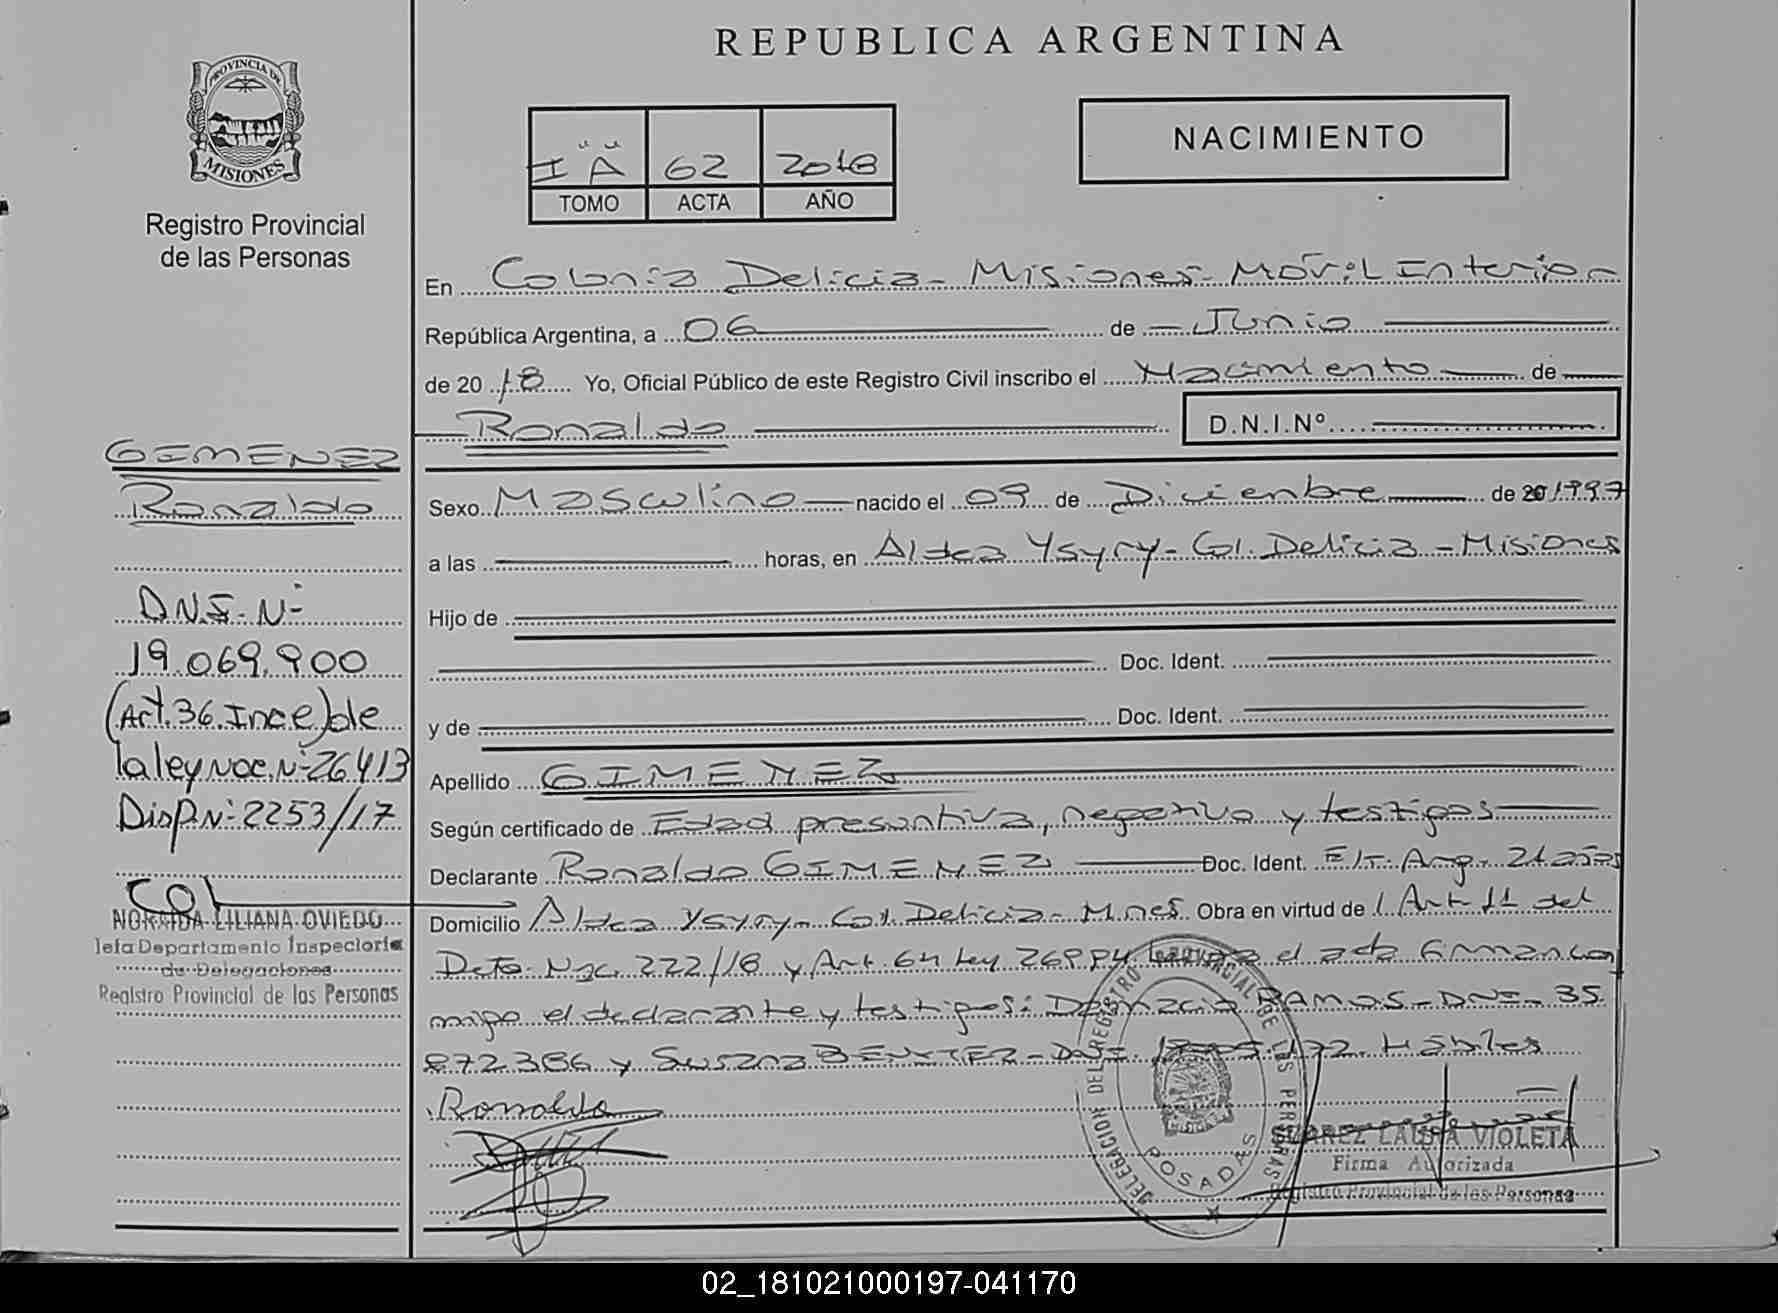 REPUBLICA ARGENTINA
PROVINCIA DE
MISIONES
Registro Provincial
de las Personas
I "A" 62 2018
TOMO ACTA AÑO
NACIMIENTO
En Colonia Delicia - Misiones - Móvil Interior
República Argentina, a 06 de Junio
de 2018 Yo, Oficial Público de este Registro Civil inscribo el Nacimiento de
Ronaldo D.N.I.Nº
Sexo Masculino nacido el 09 de Diciembre de 20 1997
a las horas, en Aldea Ysyry - Col. Delicia - Misiones
Hijo de
Doc. Ident.
y de Doc. Ident.
Apellido GIMENEZ
Según certificado de Edad presuntiva, negativo y testigos
Declarante Ronaldo GIMENEZ Doc. Ident. E/T. Arg. 21 años
Domicilio Aldea Ysyry - Col. Delicia - Mnes. Obra en virtud de l Art 11 del
Dcto. Nac. 222/18 y Art 64 Ley 26994 el acta firman con
migo el declarante y testigos: RAMOS - DNI - 35
872.386 y Susana BENITEZ - DNI Hábiles
Ronaldo
GIMENEZ
Ronaldo
D.N.I. Nº
19.069.900
(Art. 36 Inc e) de
la ley Nac. Nº 26413
Disp. Nº 2253/17
NORMA LILIANA OVIEDO
Jefa Departamento Inspectoria
de Delegaciones
Registro Provincial de las Personas
DELEGACION DEL REGISTRO PROVINCIAL DE LAS PERSONAS
POSADAS
SUAREZ LAURA VIOLETA
Firma Autorizada
Registro Provincial de las Personas
02_181021000197-041170